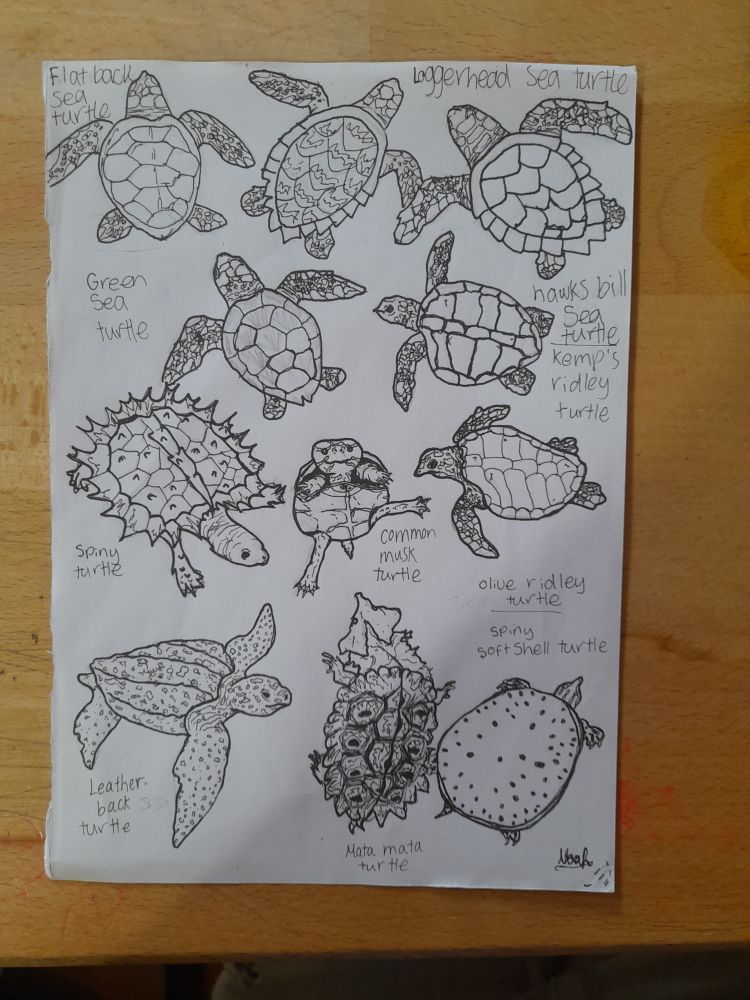 Flat back
Sea
turtle
Loggerhead Sea turtle
Green
Sea
turtle
hawks bill
Sea
turtle
kemp's
ridley
turtle
Spiny
turtle
common
musk
turtle
olive ridley
turtle
spiny
softshell turtle
Leather-
back
turtle
Mata mata
turtle
Noah